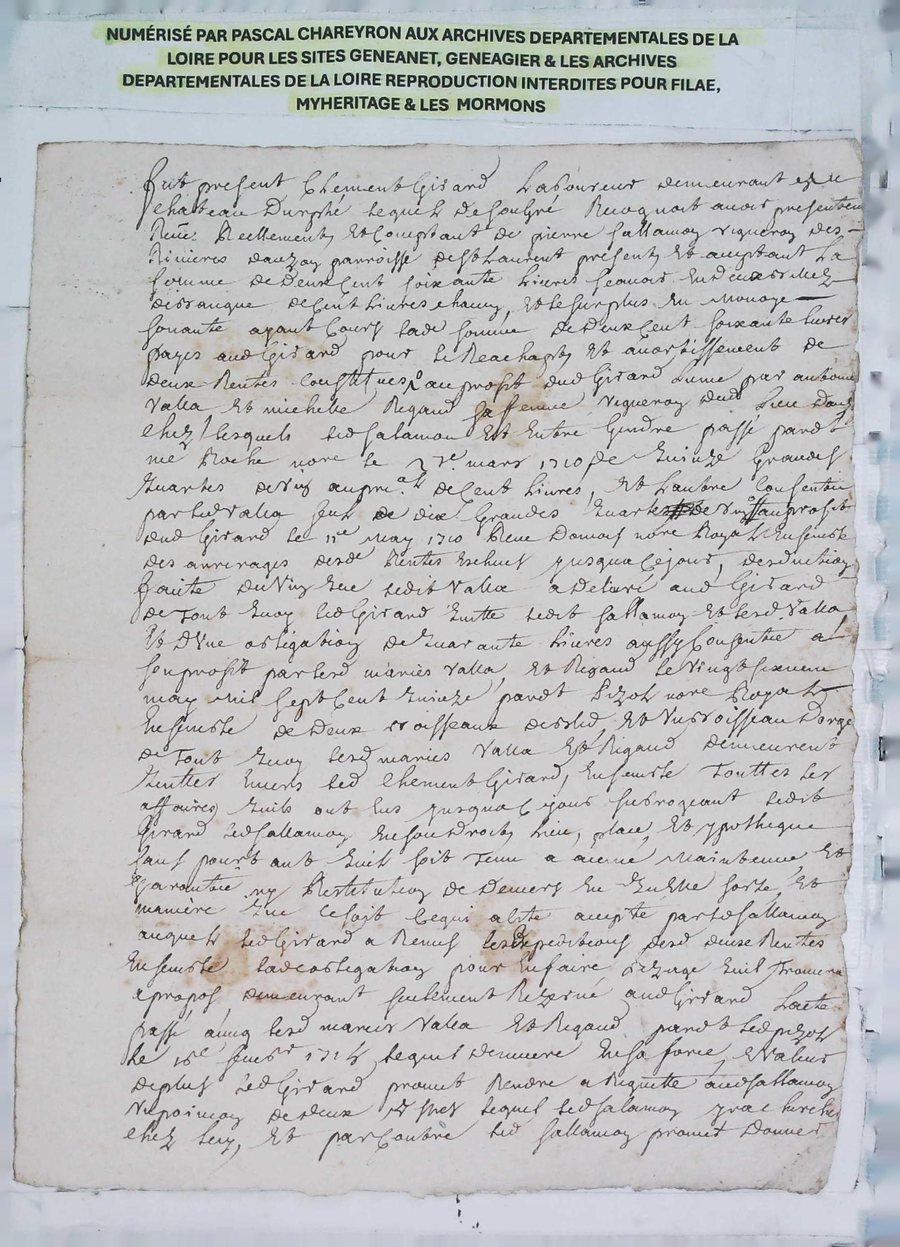 NUMÉRISÉ PAR PASCAL CHAREYRON AUX ARCHIVES DEPARTEMENTALES DE LA
LOIRE POUR LES SITES GENEANET, GENEAGIER & LES ARCHIVES
DEPARTEMENTALES DE LA LOIRE REPRODUCTION INTERDITES POUR FILAE,
MYHERITAGE & LES MORMONS
fut present Clement Girard Laboureur demeurant
chateau Durphé lequel de son gré Recognoit avoir presentem
Reellement Et Comptant de pierre Sallamon vigneron des
Rivieres parroisse de St Laurent present Et aceptant La
somme de Deux Cent soixante Livres scavoir En
de banque de Cent Livres chacun, Et le surplus En Monoye
sonante ayant Cours lade somme de Deux Cent soixante Livres
payes aud Girard pour le Reachapt Et amortissement de
deux Rentes Constitues au profit dud Girard Lune par antoine
Valla Et michelle Rigaud sa femme vigneron dud Lieu
chez lesquels led Salamon Est Entré Gendre passé pardt
me Roche nore le mars 1710 de Quinze Grandes
Quartes de vin au de Cent Livres, Et Lautre Consentie
par led Valla seul de dix Grandes Quartes au profit
dud Girard le 11e May 1710 Receue nore Royal Ensemble
des arrerages desd Rentes Escheus jusqua Ce jour, desduction
faite du vin que ledit Valla a delivré aud Girard
de Tout quoy led Girard quitte ledit Sallamon Et lesd Valla
Et Dune obligation de quarante Livres aussy Consentie a
son profit par lesd mariés Valla, Et Rigaud le vingt
may mil sept Cent quinze pardt Pizot nore Royal
Ensemble de Deux boisseaux de bled Et un boisseau dorge
de Tout quoy lesd mariés Valla Et Rigaud demeurent
quittes Envers led Clement Girard, Ensemble Touttes les
affaires quils ont Eus jusqua Ce jour subrogeant ledit
Girard led Sallamon En son droit, Lieu, place, Et ypotheque
sans pourtant quil soit Tenu a aucune Maintenue, Et
Garantie ny Restitution de Deniers En quelle sorte, Et
maniere que Ce soit Ce qui a Esté accepté par led Sallamon
auquel led Girard a Remis les Expeditions desd deux Rentes
Ensemble lade obligation pour En faire quil trouvera
a propos demeurant seulement Rezervé aud Girard Lacte
passé avec lesd mariés Valla Et Rigaud pardt led pizot
le lequel demeure En sa force, Et Valeur
de plus led Girard promet Rendre aud Sallamon
un poinson de deux lequel led Salamon yra chercher
chez luy, Et par Contre led Sallamon promet donner